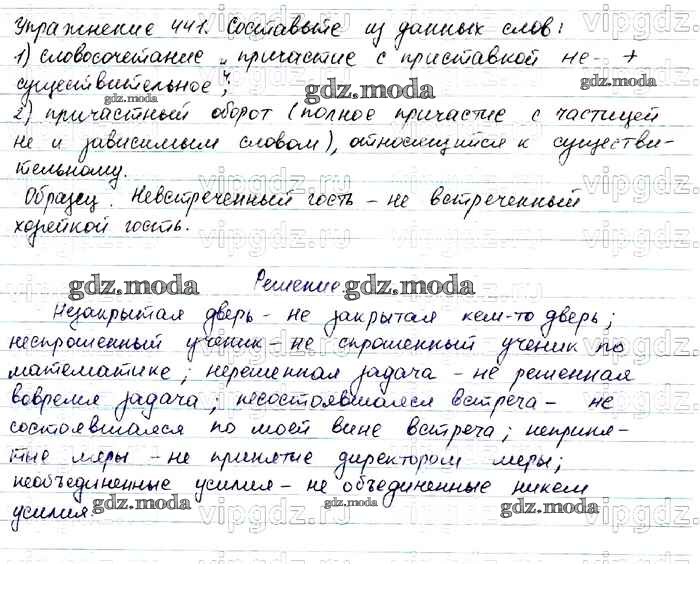 Упражнение 441. Составьте из данных слов:
1) словосочетание „причастие с приставкой не- +
существительное“;
gdz.moda gdz.moda gdz.moda
2) причастный оборот (полное причастие с частицей
не и зависимым словом), относящийся к существи-
тельному.
Образец. Невстреченный гость – не встреченный
хозяйкой гость.
gdz.moda Решение. gdz.moda
Незакрытая дверь – не закрытая кем-то дверь;
неспрошенный ученик – не спрошенный ученик по
математике; нерешенная задача – не решенная
вовремя задача; несостоявшаяся встреча – не
состоявшаяся по моей вине встреча; неприня-
тые меры – не принятие директором меры;
необъединенные усилия – не объединенные никем
усилия.
gdz.moda gdz.moda gdz.moda
vipgdz.ru